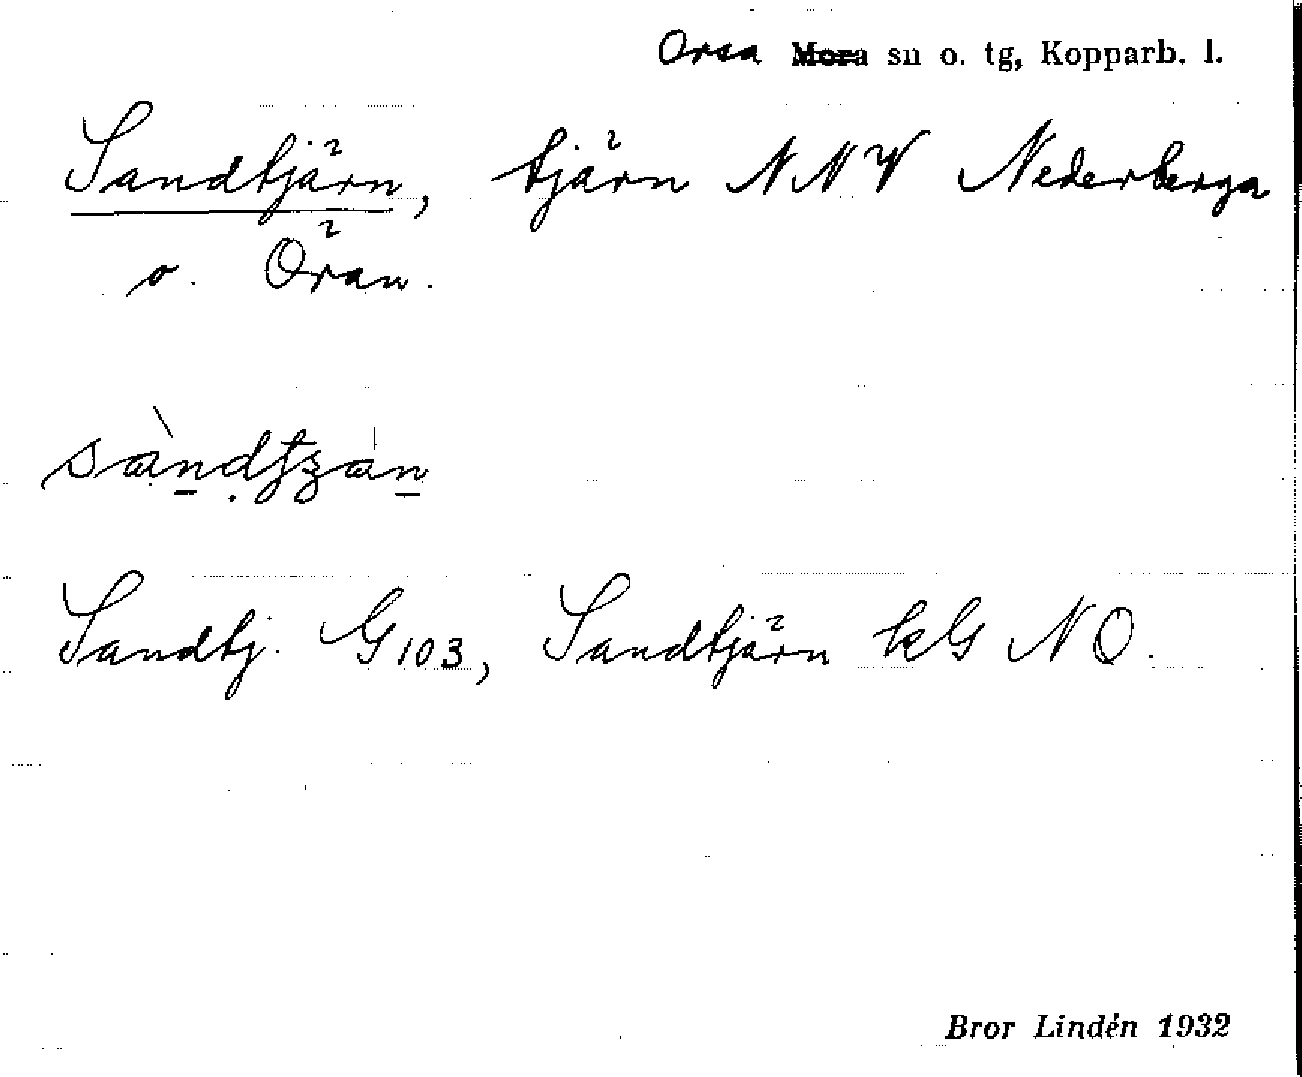 Orsa Mora sn o. tg, Kopparb. l.
Sandtjärn, tjärn NNV Nederberga
o. Öran.
Sandtj. G103, Sandtjärn kG NO.
Bror Lindén 1932